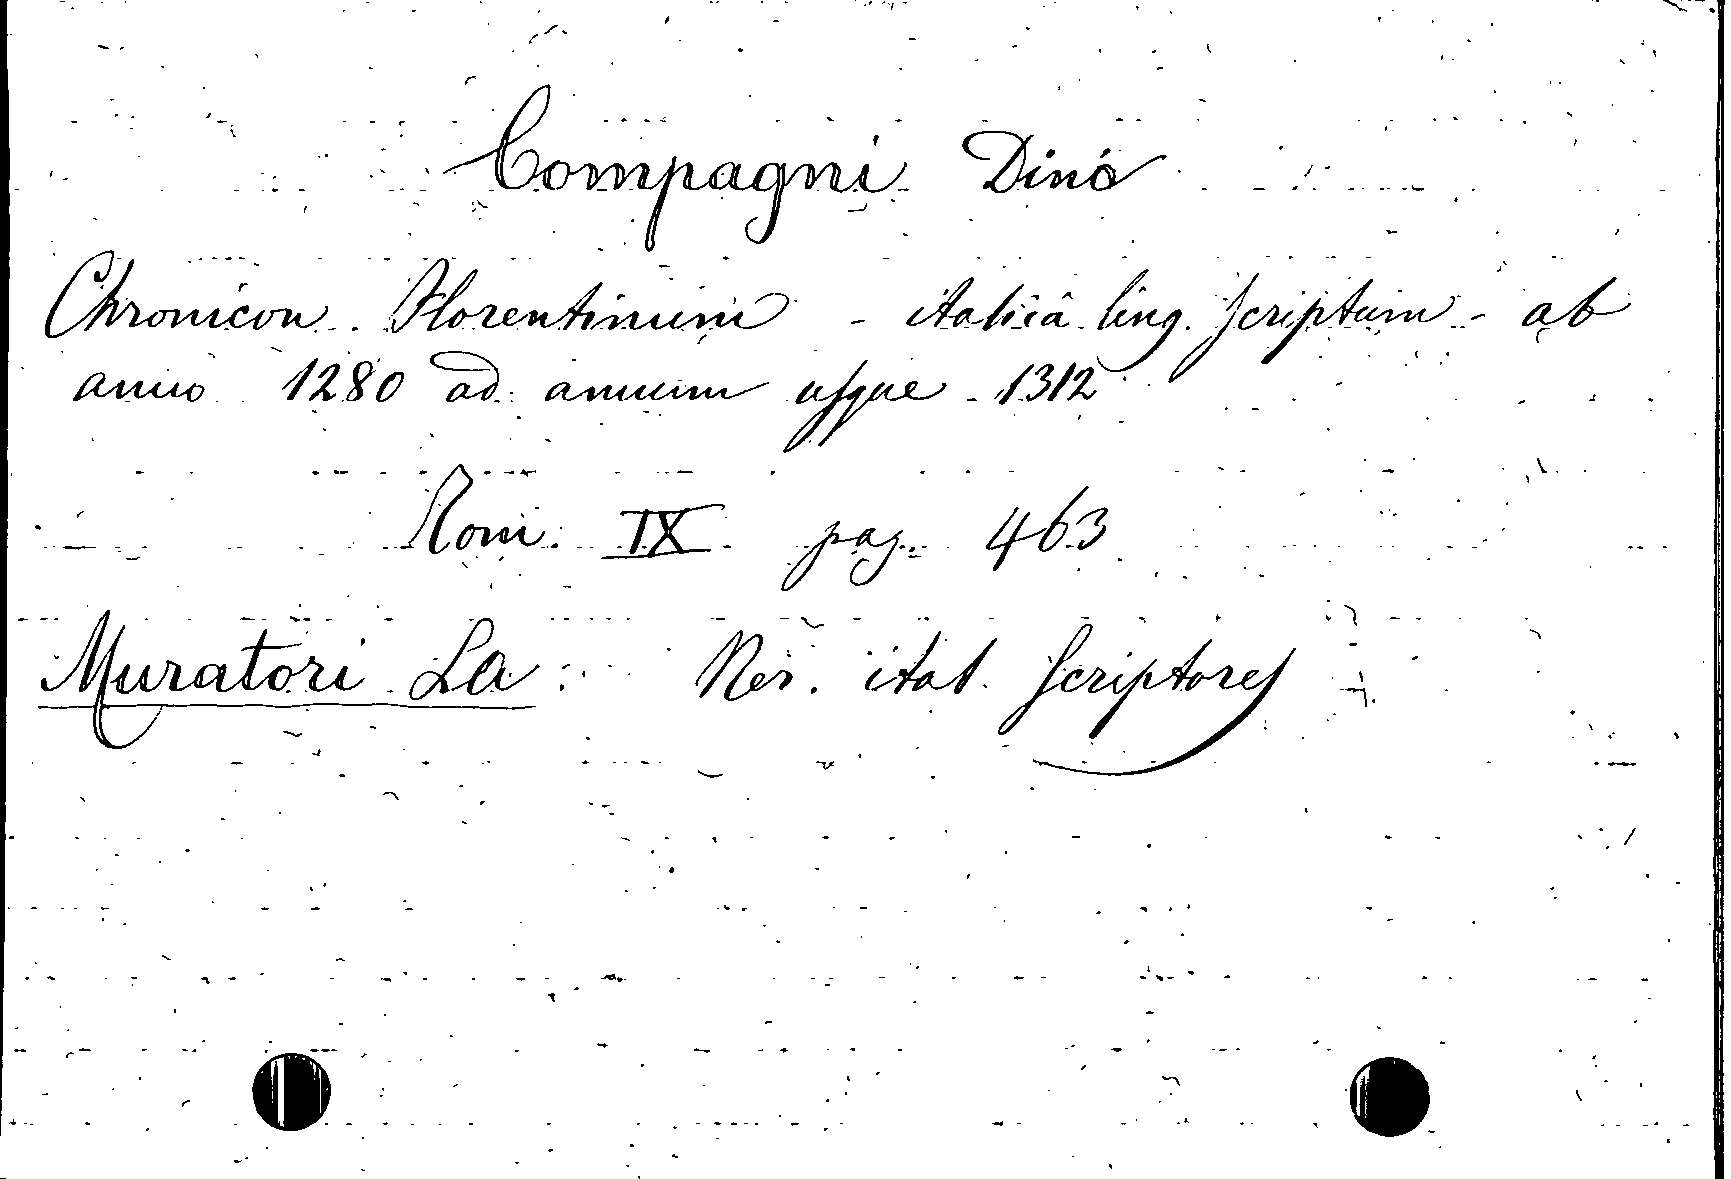 Compagni Dino
Chronicon Florentinum - italicâ ling. scriptum - ab
anno 1280 ad annum usque 1312
Tom. IX pag. 463
Muratori LA: Rer. ital. Scriptores